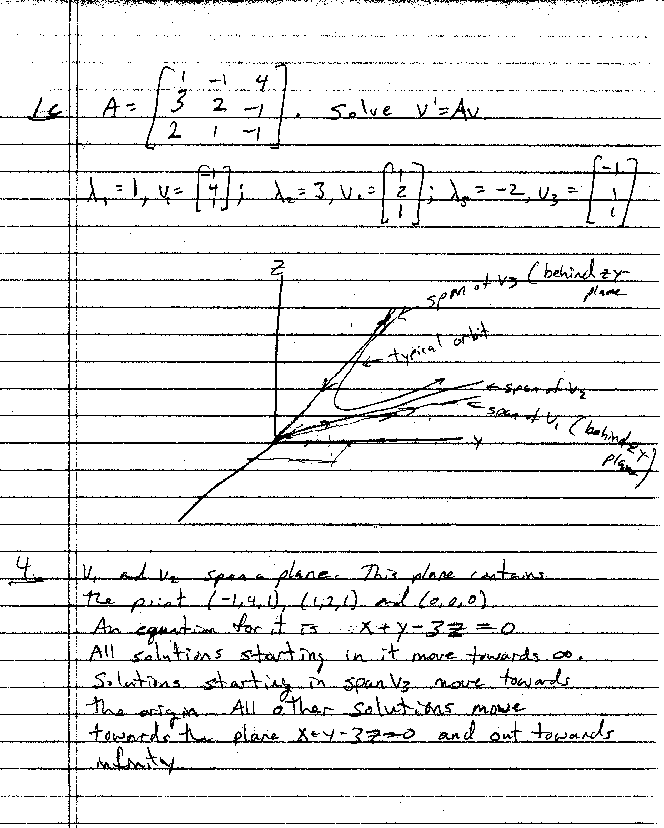 1c A = [1 -1 4; 3 2 -1; 2 1 -1]. Solve v' = Av.
λ₁ = 1, v₁ = [-1 4 1]; λ₂ = 3, v₂ = [1 2 1]; λ₃ = -2, v₃ = [-1 1 1]
z
span of v₃ (behind zy plane
← typical orbit
← span of v₂
← span of v₁ (behind zy plane)
y
4. v₁ and v₂ span a plane. This plane contains
the point (-1,4,1), (1,2,1) and (0,0,0).
An equation for it is x+y-3z=0
All solutions starting in it move towards ∞.
Solutions starting in span v₃ move towards
the origin. All other solutions move
towards the plane x+y-3z=0 and out towards
infinity.